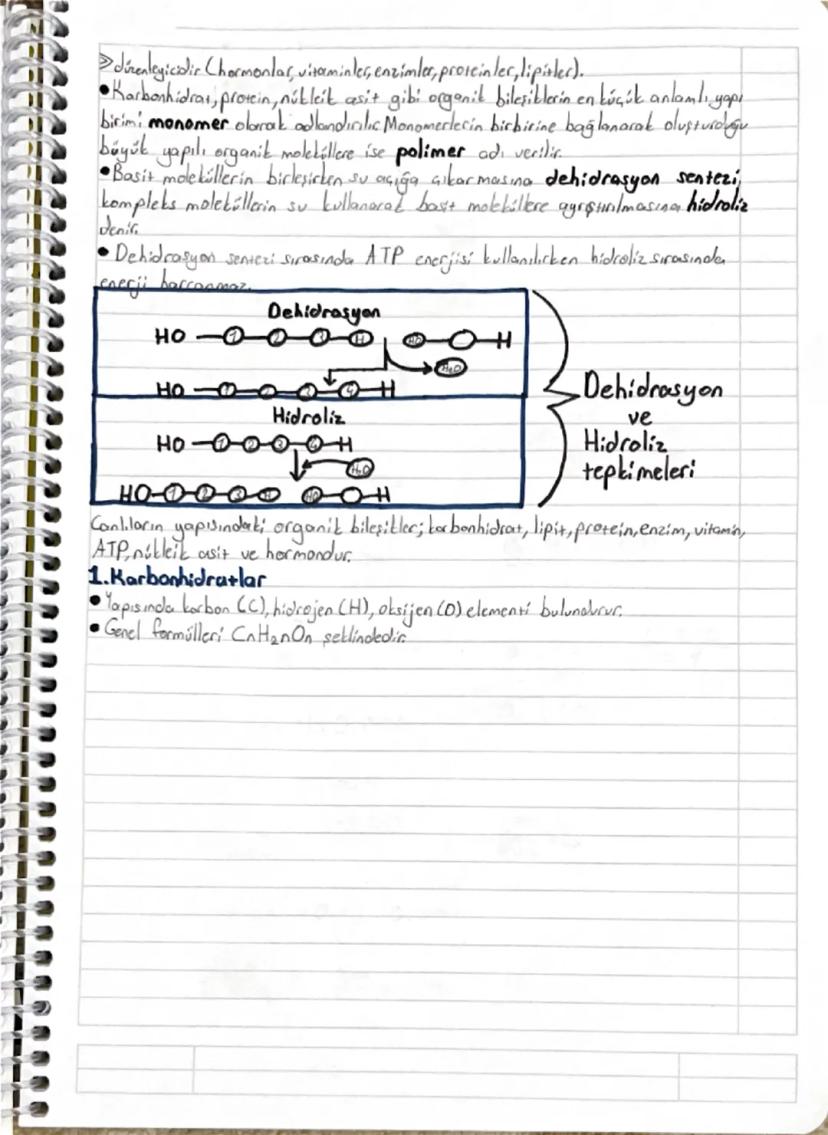 ➢ düzenleyicidir (hormonlar, vitaminler, enzimler, proteinler, lipitler).
• Karbonhidrat, protein, nükleik asit gibi organik bileşiklerin en küçük anlamlı yapı
birimi monomer olarak adlandırılır. Monomerlerin birbirine bağlanarak oluşturduğu
büyük yapılı organik moleküllere ise polimer adı verilir.
• Basit moleküllerin birleşirken su açığa çıkarmasına dehidrasyon sentezi,
kompleks moleküllerin su kullanarak basit moleküllere ayrıştırılmasına hidroliz
denir.
• Dehidrasyon sentezi sırasında ATP enerjisi kullanılırken hidroliz sırasında
enerji harcanmaz.
Dehidrasyon
HO 1 2 3 H HO H
H₂O
HO 1 2 3 4 H
Hidroliz
HO 1 2 3 4 H
H₂O
HO 1 2 3 H HO H
Dehidrasyon
ve
Hidroliz
tepkimeleri
Canlıların yapısındaki organik bileşikler; karbonhidrat, lipit, protein, enzim, vitamin,
ATP, nükleik asit ve hormondur.
1. Karbonhidratlar
• Yapısında karbon (C), hidrojen (H), oksijen (O) elementi bulundurur.
• Genel formülleri CnH₂nOn şeklindedir.